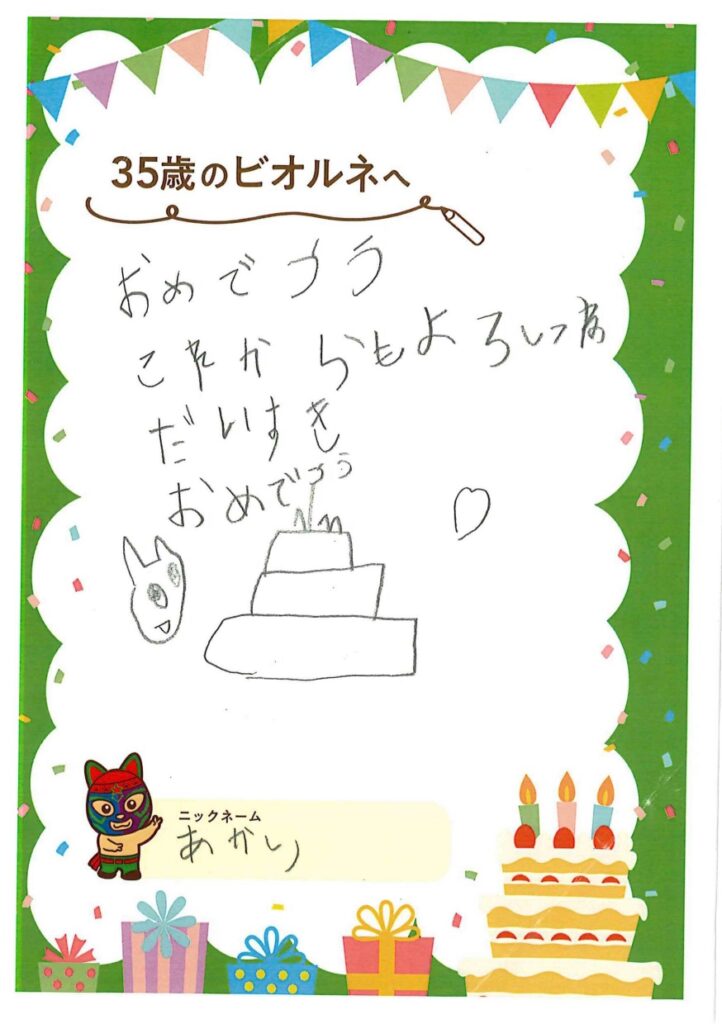 35歳のビオルネへ
おめでとう
これからもよろしくね
だいすき
おめでとう
ニックネーム
あかり